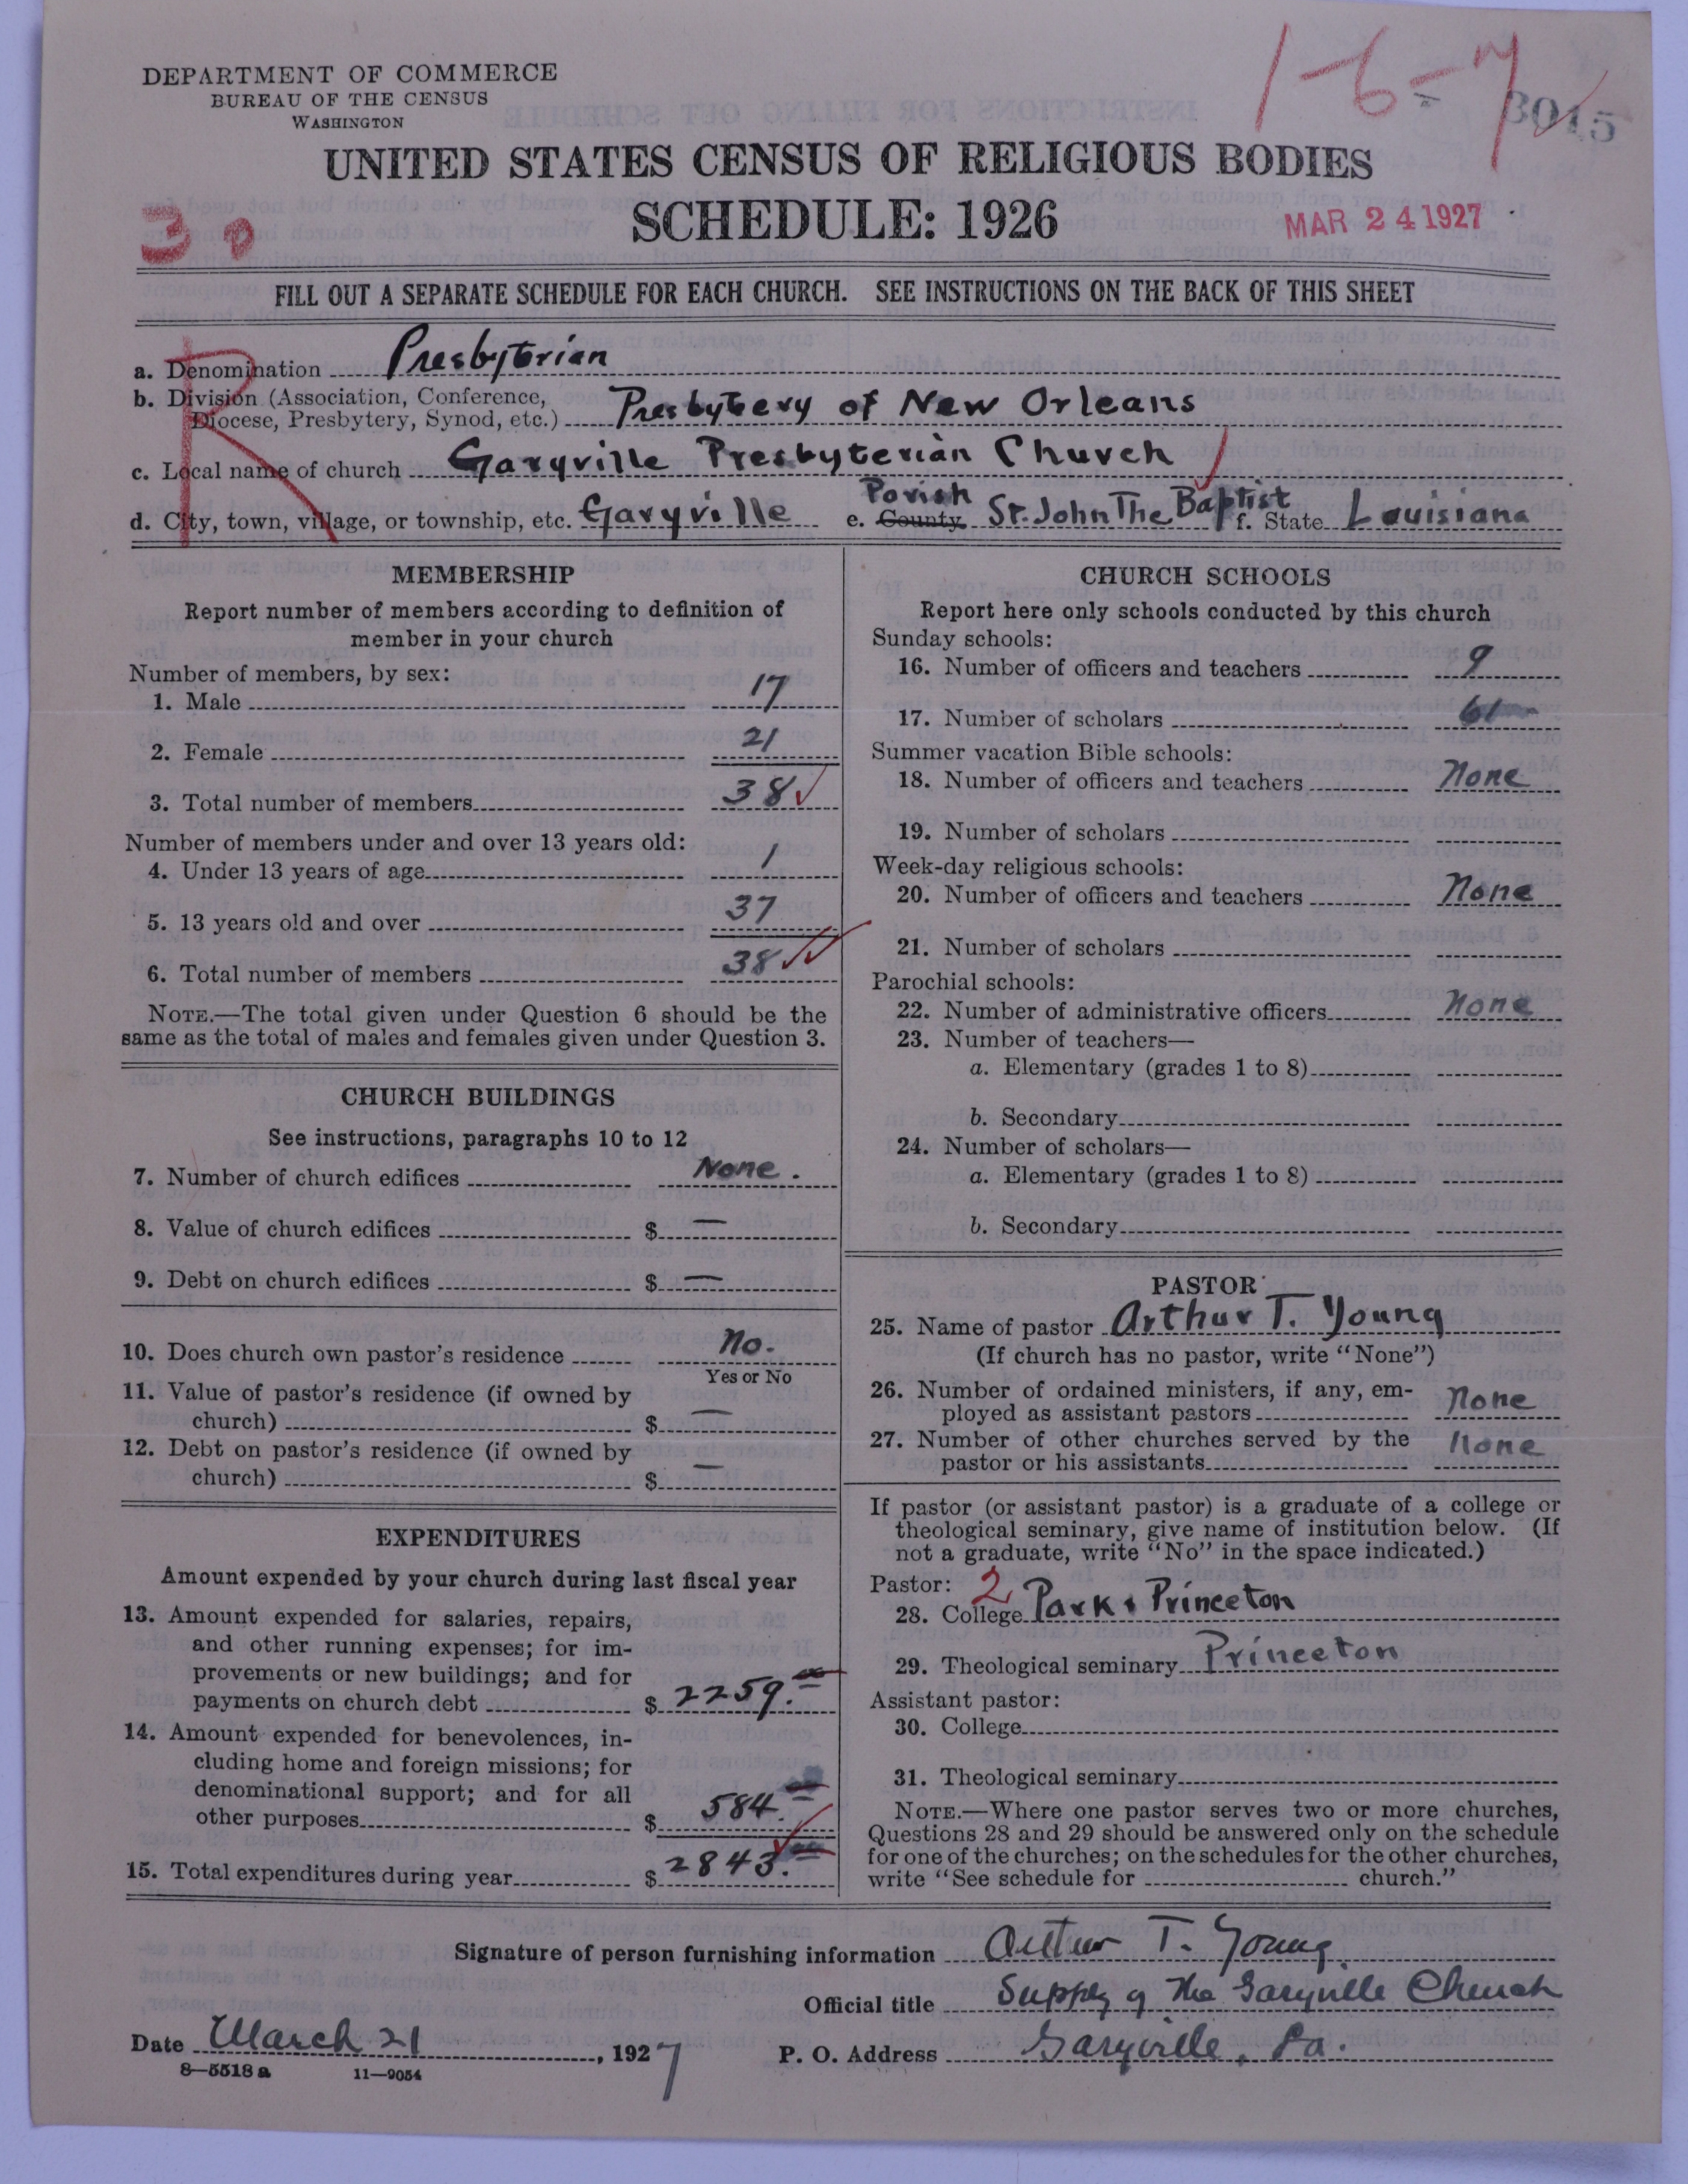 DEPARTMENT OF COMMERCE
BUREAU OF THE CENSUS
WASHINGTON
1-6-7
3015
UNITED STATES CENSUS OF RELIGIOUS BODIES
SCHEDULE: 1926
MAR 24 1927
FILL OUT A SEPARATE SCHEDULE FOR EACH CHURCH. SEE INSTRUCTIONS ON THE BACK OF THIS SHEET
R
a. Denomination Presbyterian
b. Division (Association, Conference,
Diocese, Presbytery, Synod, etc.) Presbytery of New Orleans
c. Local name of church Garyville Presbyterian Church
d. City, town, village, or township, etc. Garyville e. County Parish St. John The Baptist f. State Louisiana
MEMBERSHIP
Report number of members according to definition of
member in your church
Number of members, by sex:
1. Male 17
2. Female 21
3. Total number of members 38
Number of members under and over 13 years old:
4. Under 13 years of age 1
5. 13 years old and over 37
6. Total number of members 38
NOTE.—The total given under Question 6 should be the
same as the total of males and females given under Question 3.
CHURCH BUILDINGS
See instructions, paragraphs 10 to 12
7. Number of church edifices None.
8. Value of church edifices $ —
9. Debt on church edifices $ —
10. Does church own pastor's residence No.
Yes or No
11. Value of pastor's residence (if owned by
church) $ —
12. Debt on pastor's residence (if owned by
church) $ —
EXPENDITURES
Amount expended by your church during last fiscal year
13. Amount expended for salaries, repairs,
and other running expenses; for im-
provements or new buildings; and for
payments on church debt $ 2259.00
14. Amount expended for benevolences, in-
cluding home and foreign missions; for
denominational support; and for all
other purposes $ 584.00
15. Total expenditures during year $ 2843.00
CHURCH SCHOOLS
Report here only schools conducted by this church
Sunday schools:
16. Number of officers and teachers 9
17. Number of scholars 61
Summer vacation Bible schools:
18. Number of officers and teachers None
19. Number of scholars
Week-day religious schools:
20. Number of officers and teachers None
21. Number of scholars
Parochial schools:
22. Number of administrative officers None
23. Number of teachers—
a. Elementary (grades 1 to 8)
b. Secondary
24. Number of scholars—
a. Elementary (grades 1 to 8)
b. Secondary
PASTOR
25. Name of pastor Arthur T. Young
(If church has no pastor, write "None")
26. Number of ordained ministers, if any, em-
ployed as assistant pastors None
27. Number of other churches served by the
pastor or his assistants None
If pastor (or assistant pastor) is a graduate of a college or
theological seminary, give name of institution below. (If
not a graduate, write "No" in the space indicated.)
Pastor: 2
28. College Park & Princeton
29. Theological seminary Princeton
Assistant pastor:
30. College
31. Theological seminary
NOTE.—Where one pastor serves two or more churches,
Questions 28 and 29 should be answered only on the schedule
for one of the churches; on the schedules for the other churches,
write "See schedule for church."
Signature of person furnishing information Arthur T. Young
Official title Supply of The Garyville Church
Date March 21, 1927 P. O. Address Garyville, La.
8—5518 a 11—9054